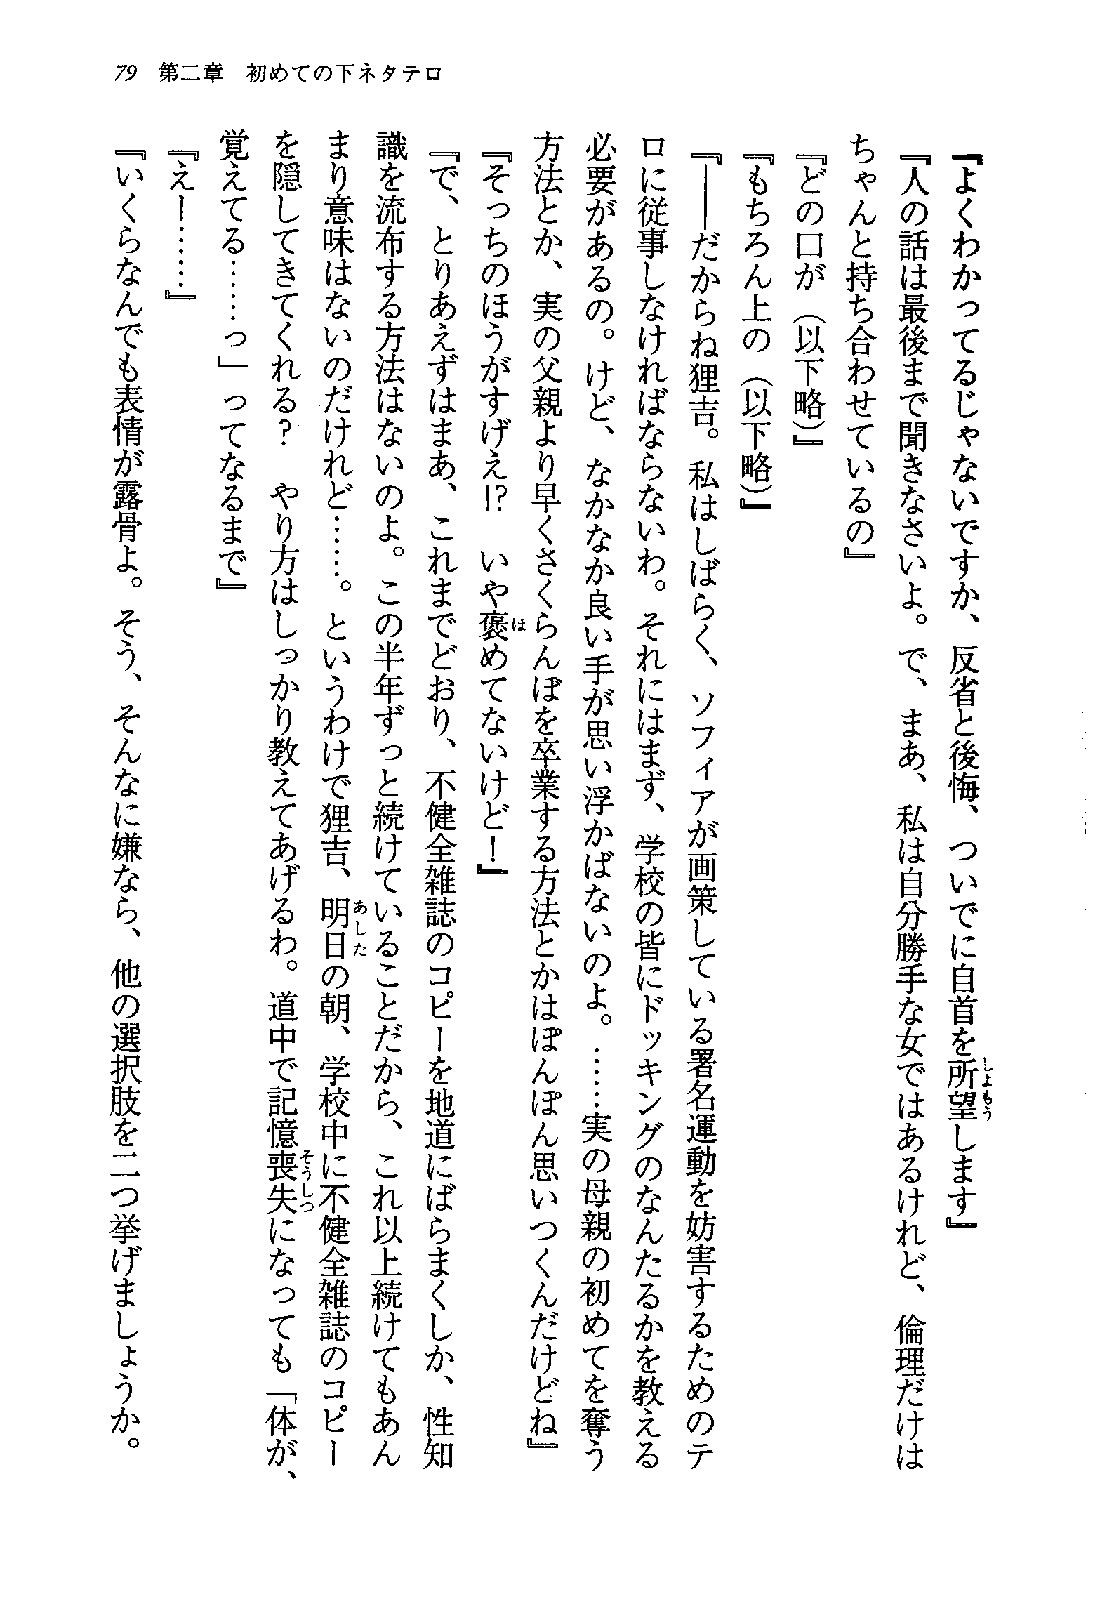 79 第二章　初めての下ネタテロ
『よくわかってるじゃないですか、反省と後悔、ついでに自首を所望します』
『人の話は最後まで聞きなさいよ。で、まあ、私は自分勝手な女ではあるけれど、倫理だけは
ちゃんと持ち合わせているの』
『どの口が（以下略）』
『もちろん上の（以下略）』
『――だからね狸吉。私はしばらく、ソフィアが画策している署名運動を妨害するためのテ
ロに従事しなければならないわ。それにはまず、学校の皆にドッキングのなんたるかを教える
必要があるの。けど、なかなか良い手が思い浮かばないのよ。……実の母親の初めてを奪う
方法とか、実の父親より早くさくらんぼを卒業する方法とかはぽんぽん思いつくんだけどね』
『そっちのほうがすげえ!?　いや褒めてないけど！』
『で、とりあえずはまあ、これまでどおり、不健全雑誌のコピーを地道にばらまくしか、性知
識を流布する方法はないのよ。この半年ずっと続けていることだから、これ以上続けてもあん
まり意味はないのだけれど……。というわけで狸吉、明日の朝、学校中に不健全雑誌のコピー
を隠してきてくれる？　やり方はしっかり教えてあげるわ。道中で記憶喪失になっても「体が、
覚えてる……っ」ってなるまで』
『えー……』
『いくらなんでも表情が露骨よ。そう、そんなに嫌なら、他の選択肢を二つ挙げましょうか。